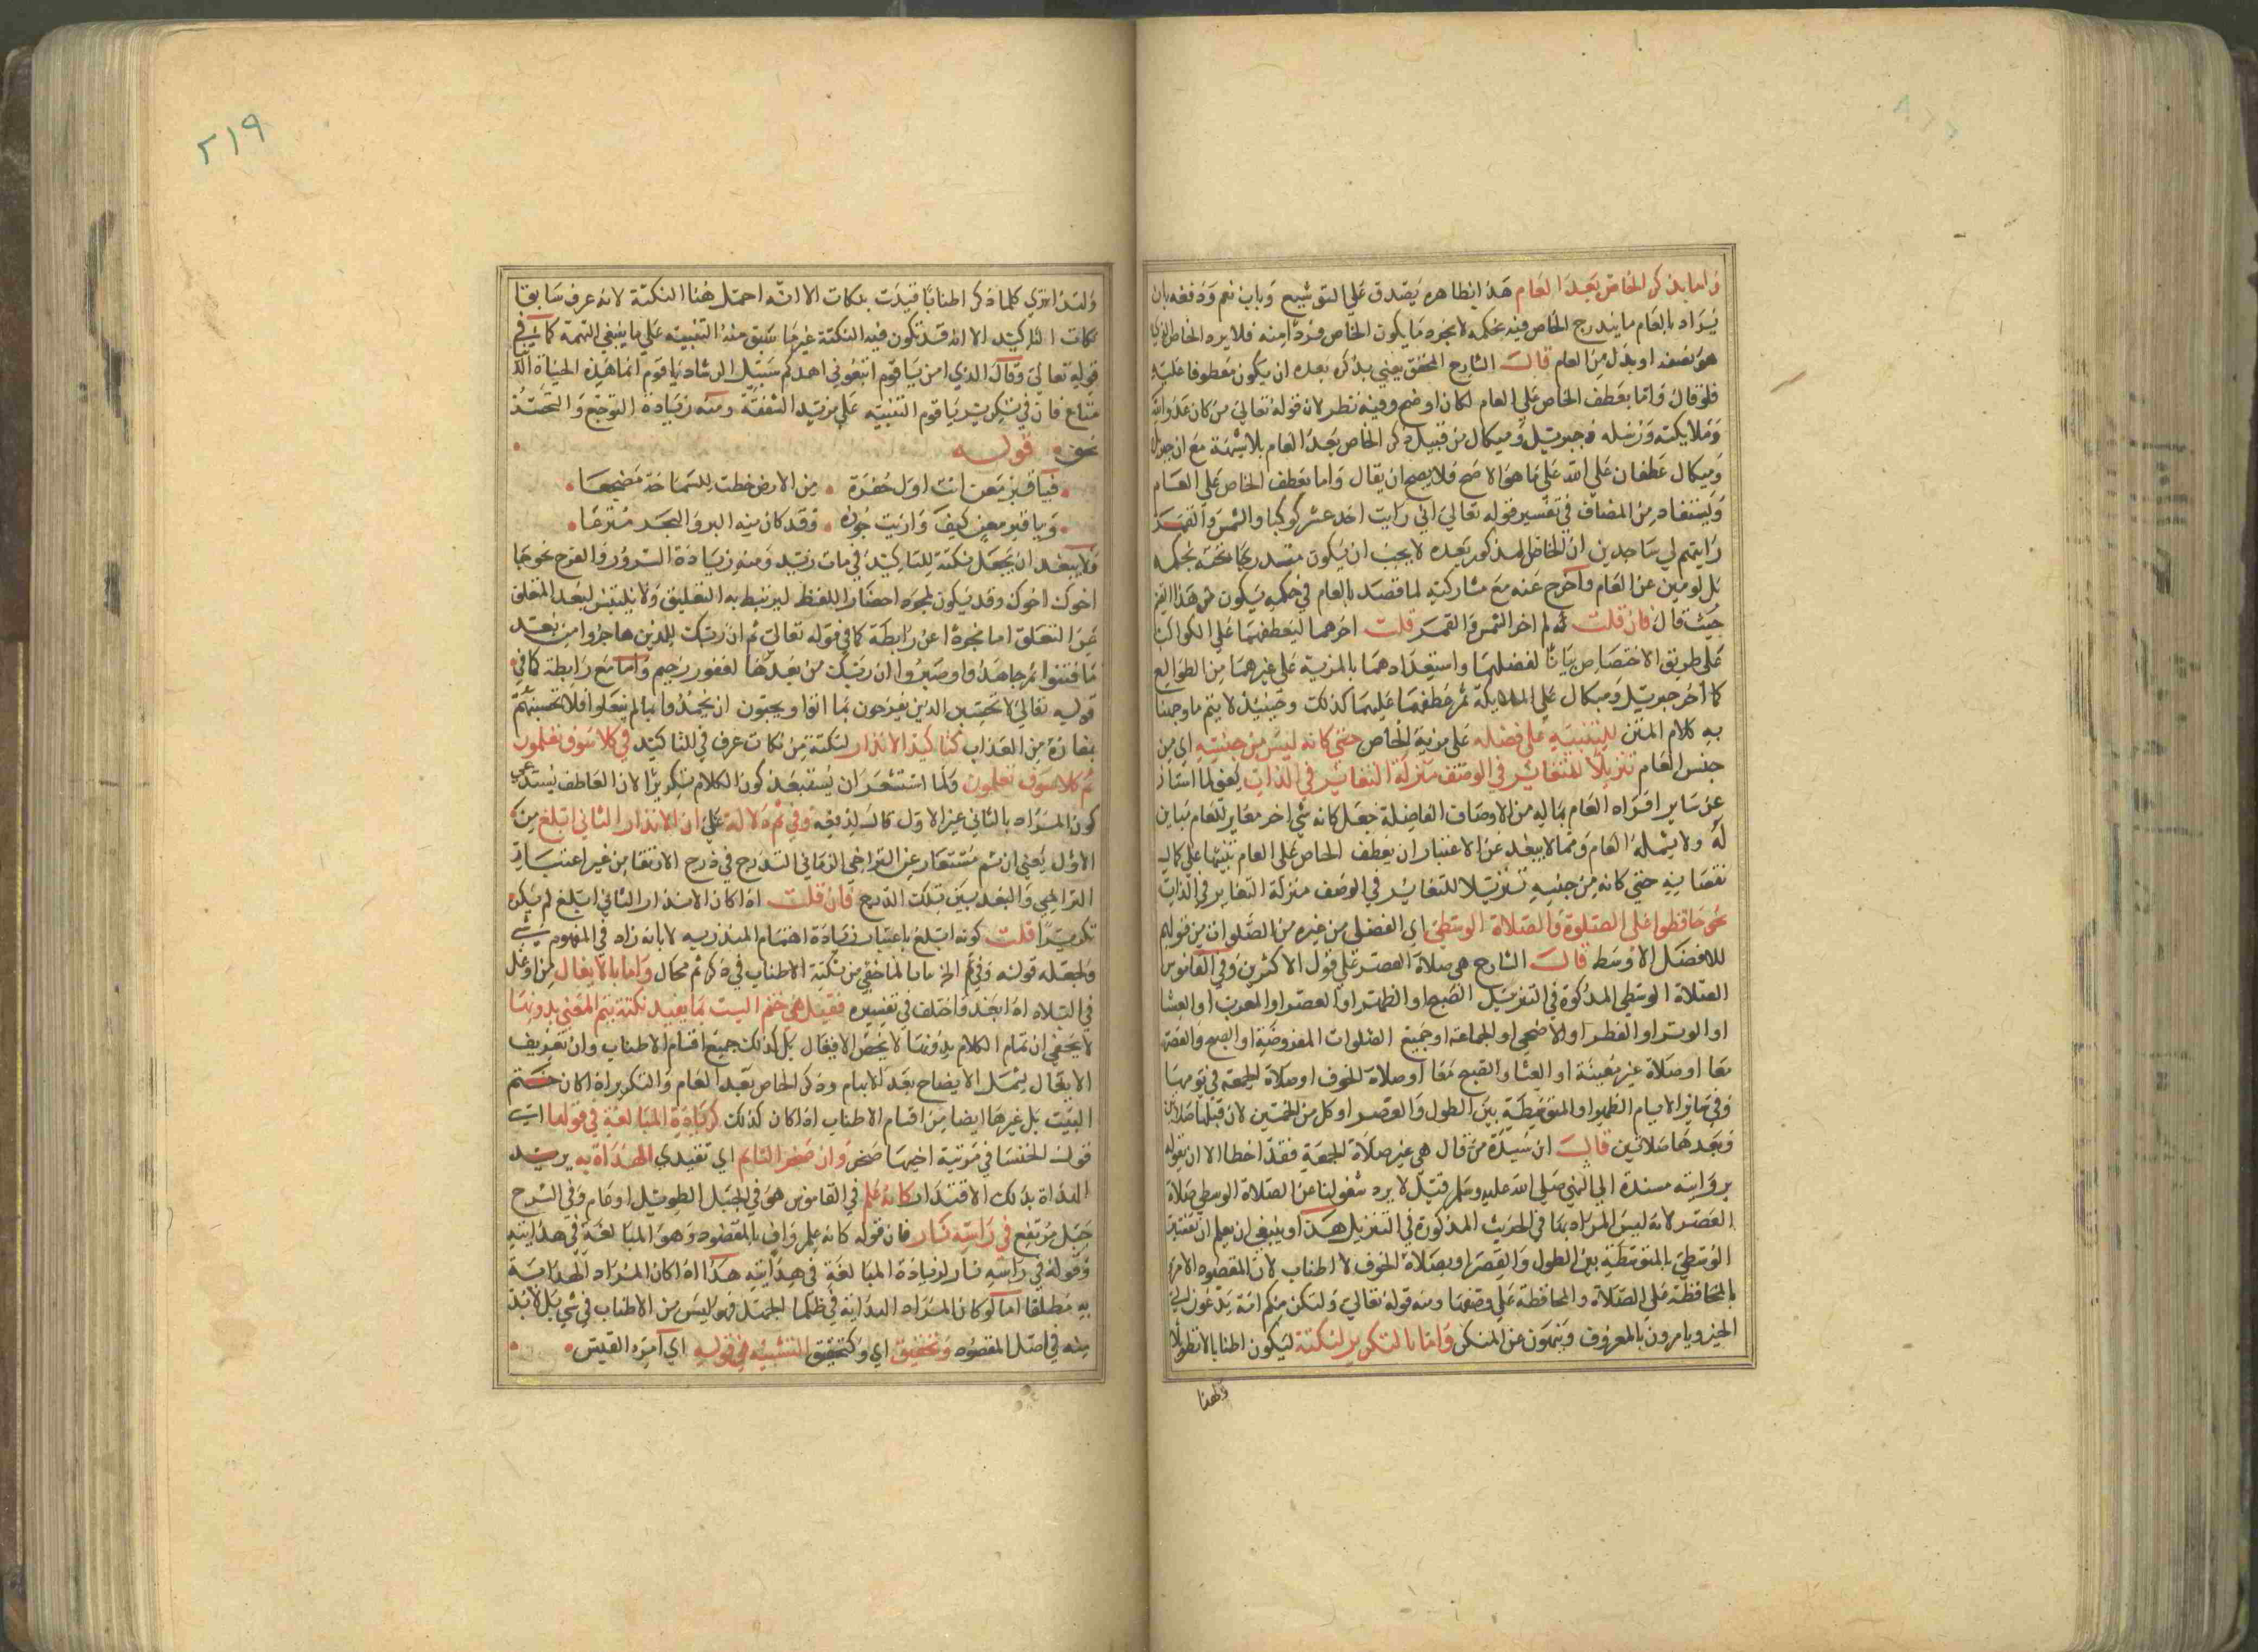 واما بذكر الخاص بعد العام هذا بظاهره يصدق على التوشيع وباب نعم ودفعه بان
يراد بالعام ما يندرج الخاص فيه بحكمه لا بجرد ما يكون الخاص فردا منه فلا يرد الخاص الذي
هو نصف او بدل من العام قال الشارح المحقق يعني بذكره بعده ان يكون معطوفا عليه
فلو قال واما بعطف الخاص على العام لكان اوضح وفيه نظر لان قوله تعالى من كان عدوا لله
وملايكته ورسله وجبريل وميكال من قبيل ذكر الخاص بعد العام بلا شبهة مع ان جبريل
وميكال عطفان على الله على ما هو الاصح فلا يصح ان يقال واما بعطف الخاص على العام
ويستفاد من المضاف في تفسير قوله تعالى اني رايت احد عشر كوكبا والشمس والقمر
رايتهم لي ساجدين ان الخاص المذكور بعده لا يجب ان يكون مندرجا تحته بحكمه
بل لو بين عن العام واخرج عنه مع مشاركته لما قصد بالعام في حكمه يكون من هذا القبيل
حيث قال فان قلت لم اخر الشمس والقمر قلت اخرهما ليعطفهما على الكواكب
على طريق الاختصاص بيانا لفضلهما واستبدادهما بالمزية على غيرهما من الطوالع
كما اخر جبريل وميكال على الملايكة ثم عطفهما عليهما كذلك وحينئذ لا يتم ما وجهنا
به كلام المتن للتنبيه على فضله على مزية الخاص حتى كانه ليس من جنسه اي من
جنس العام تنزيلا للتغاير في الوصف منزلة التغاير في الذات يعني لما امتاز
عن ساير افراد العام بماله من الاوصاف الفاضلة جعل كانه شي اخر مغاير للعام مباين
له ولا يشمله العام ومما لا يبعد عن الاعتبار ان يعطف الخاص على العام تنبيها على كمال
نقصانه حتى كانه من جنسه تنزيلا للتغاير في الوصف منزلة التغاير في الذات
نحو حافظوا على الصلوة والصلاة الوسطى اي الفضلى من غيره من الصلوات من قولهم
للافضل الاوسط قال الشارح هي صلاة العصر على قول الاكثرين وفي القاموس
الصلاة الوسطى المذكورة في التنزيل الصبح او الظهر او العصر او المغرب او العشا
او الوتر او الفطر او الاضحى او الجماعة او جميع الصلوات المفروضة او الصبح والعصر
معا او صلاة غير معينة او العشا والصبح معا او صلاة الخوف او صلاة الجمعة في يومها
وفي ساير الايام الظهر او المتوسطة بين الطول والقصر او كل من الخمس لان قبلها صلاتين
وبعدها صلاتين قال ابن سيدة من قال هي غير صلاة الجمعة فقد اخطا الا ان يقوله
برواية مسندة الى النبي صلى الله عليه وسلم قيل لا يرد شغلونا عن الصلاة الوسطى صلاة
العصر لانه ليس المراد بها في الحديث المذكورة في التنزيل هذا وينبغي ان يعلم ان تفسير
الوسطى بالمتوسطة بين الطول والقصر او بصلاة الخوف لا اطناب لان المقصود الامر
بالمحافظة على الصلاة والمحافظة على وصفها ومنه قوله تعالى ولتكن منكم امة يدعون الى
الخير ويامرون بالمعروف وينهون عن المنكر واما بالتكرير لنكتة ليكون اطنابا لا تطويلا
ولهذا
٢١٩
ولقد اتري كلما ذكر اطنابا قيدت بنكات الا انه احتمل هنا النكتة لانه عرف سابقا
نكات التاكيد الا انه قد تكون فيه النكتة غير ما سبق منه التنبيه على ما ينبغي التهمة كما في
قوله تعالى وقال الذي امن يا قوم اتبعوني اهدكم سبيل الرشاد يا قوم انما هذه الحياة الدنيا
متاع فان في تكرير يا قوم التنبيه على مزيد الشفقة ومنه زيادة التوجع والتحسر
نحو قوله
فيا قبر معن انت اول حفرة من الارض خطت للسماحة مضجعا
ويا قبر معن كيف واريت جوده وقد كان منه البر والبحر مترعا
ولا يبعد ان يجعل نكتة للتاكيد في مات زيد ومنه زيادة السرور والفرح نحو جا
اخوك اخوك وقد يكون لمجرد احضار اللفظ ليرتبط به التعليق ولا يلتبس لبعد المتعلق
عن المتعلق اما مجردا عن رابطة كما في قوله تعالى ثم ان ربك للذين هاجروا من بعد
ما فتنوا ثم جاهدوا وصبروا ان ربك من بعدها لغفور رحيم واما مع رابطة كما في
قوله تعالى لا تحسبن الذين يفرحون بما اتوا ويحبون ان يحمدوا بما لم يفعلوا فلا تحسبنهم
بمفازة من العذاب كتاكيد الانذار لنكتة من نكات عرف في للتاكيد في كلا سوف تعلمون
ثم كلا سوف تعلمون ولما استشعر ان يستبعد كون الكلام تكريرا لان العاطف يستدعي
كون المراد بالثاني غير الاول قال لدفعه وفي ثم دلالة على ان الانذار الثاني ابلغ من
الاول يعني ان ثم مستعار عن التراخي الزماني للتدرج في درج الارتقا من غير اعتبار
التراخي والبعد بين تلك الدرج فان قلت اذا كان الانذار الثاني ابلغ لم يكن
تكريرا قلت كونه ابلغ باعتبار زيادة اهتمام المنذر به لا بانه زاد في المفهوم شي
ولجعله قوله وفي ثم الخ بيانا لما خفي من نكتة الاطناب في ذكر ثم محال واما بالايغال من اوغل
في البلاد اذا ابعد واختلف في تفسيره فقيل هي ختم البيت بما يفيد نكتة يتم المعنى بدونها
لا يخفى ان تمام الكلام بدونها لا يخص الايغال بل كذلك جميع اقسام الاطناب وان تعريف
الايغال يشمل الايضاح بعد الابهام وذكر الخاص بعد العام والتكرير اذا كان ختم
البيت بل غيرها ايضا من اقسام الاطناب اذا كان كذلك كزيادة المبالغة في قولها اي
قول الخنسا في مرثية اخيها صخر وان صخرا لتاتم اي تقتدي الهداة به يريد
الهداة بذلك الاقتدا كانه علم في القاموس هو في الجبل الطويل او عام وفي الشرح
جبل مرتفع في راسه نار فان قوله كانه علم واف بالمقصود وهو المبالغة في هدايته
وقوله في راسه نار لزيادة المبالغة في هدايته هذا اذا كان المراد الهداية
به مطلقا اما لو كان المراد الهداية في ظلما الجهل فهو ليس من الاطناب في شي بل لا بد
منه في اصل المقصود وتحقيق اي وكتحقيق التشبيه في قوله اي امرء القيس